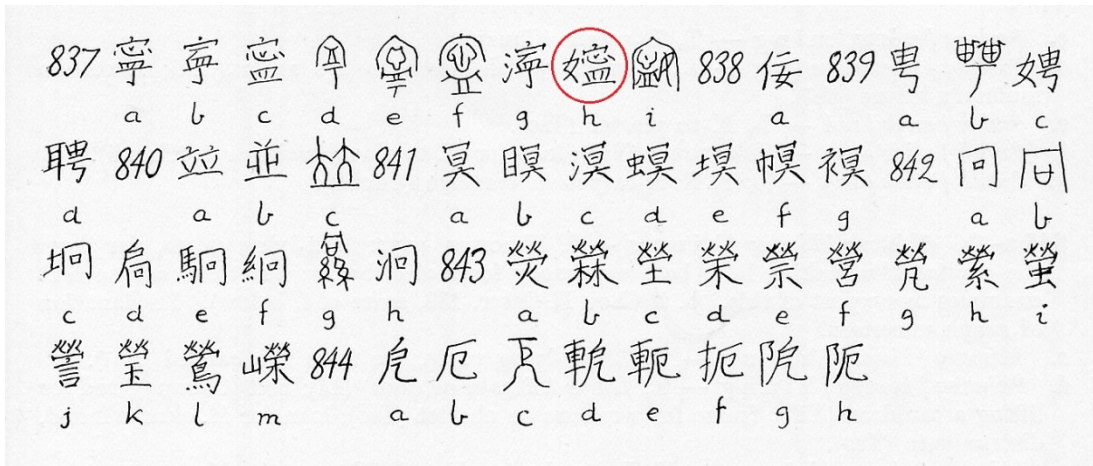 837 寧 寍 濘 838 佞 839 甹 娉
a b c d e f g h i a a b c
聘 840 竝 並 841 冥 瞑 溟 螟 塓 幎 842 冋
d a b c a b c d e f g a b
坰 扃 駉 絅 泂 843 熒 塋 榮 禜 營 煢 縈 螢
c d e f g h a b c d e f g h i
謍 瑩 鶯 嶸 844 戹 厄 軶 軛 扼 阸 阨
j k l m a b c d e f g h